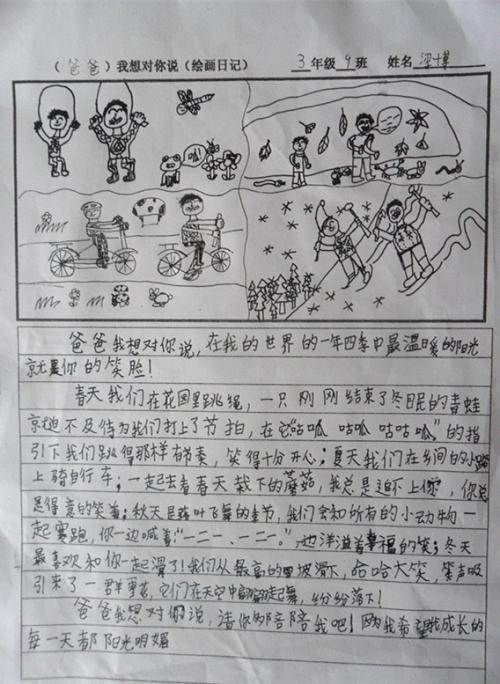 (爸爸)我想对你说(绘画日记) 3年级9班 姓名梁博
呱
爸爸我想对你说，在我的世界的一年四季中最温暖的阳光
就是你的笑脸！
春天我们在花园里跳绳，一只刚刚结束了冬眠的青蛙
迫不及待为我们打上了节拍，在它“咕呱 咕呱 咕咕呱”的指
引下我们跳得那样有节奏，笑得十分开心；夏天我们在乡间的小路
上骑自行车；一起去看春天栽下的蘑菇，我总是追不上你，你总
是得意的笑着；秋天是落叶飞舞的季节，我们会和所有的小动物一
起赛跑，你一边喊着“一二一、一二一”，边洋溢着幸福的笑；冬天
最喜欢和你一起滑了！我们从最高的坡滑下，哈哈大笑，笑声吸
引来了一群雪花，它们在天空中翩翩起舞，纷纷落下！
爸爸我想对你说，请你陪陪我吧！因为我希望我成长的
每一天都阳光明媚